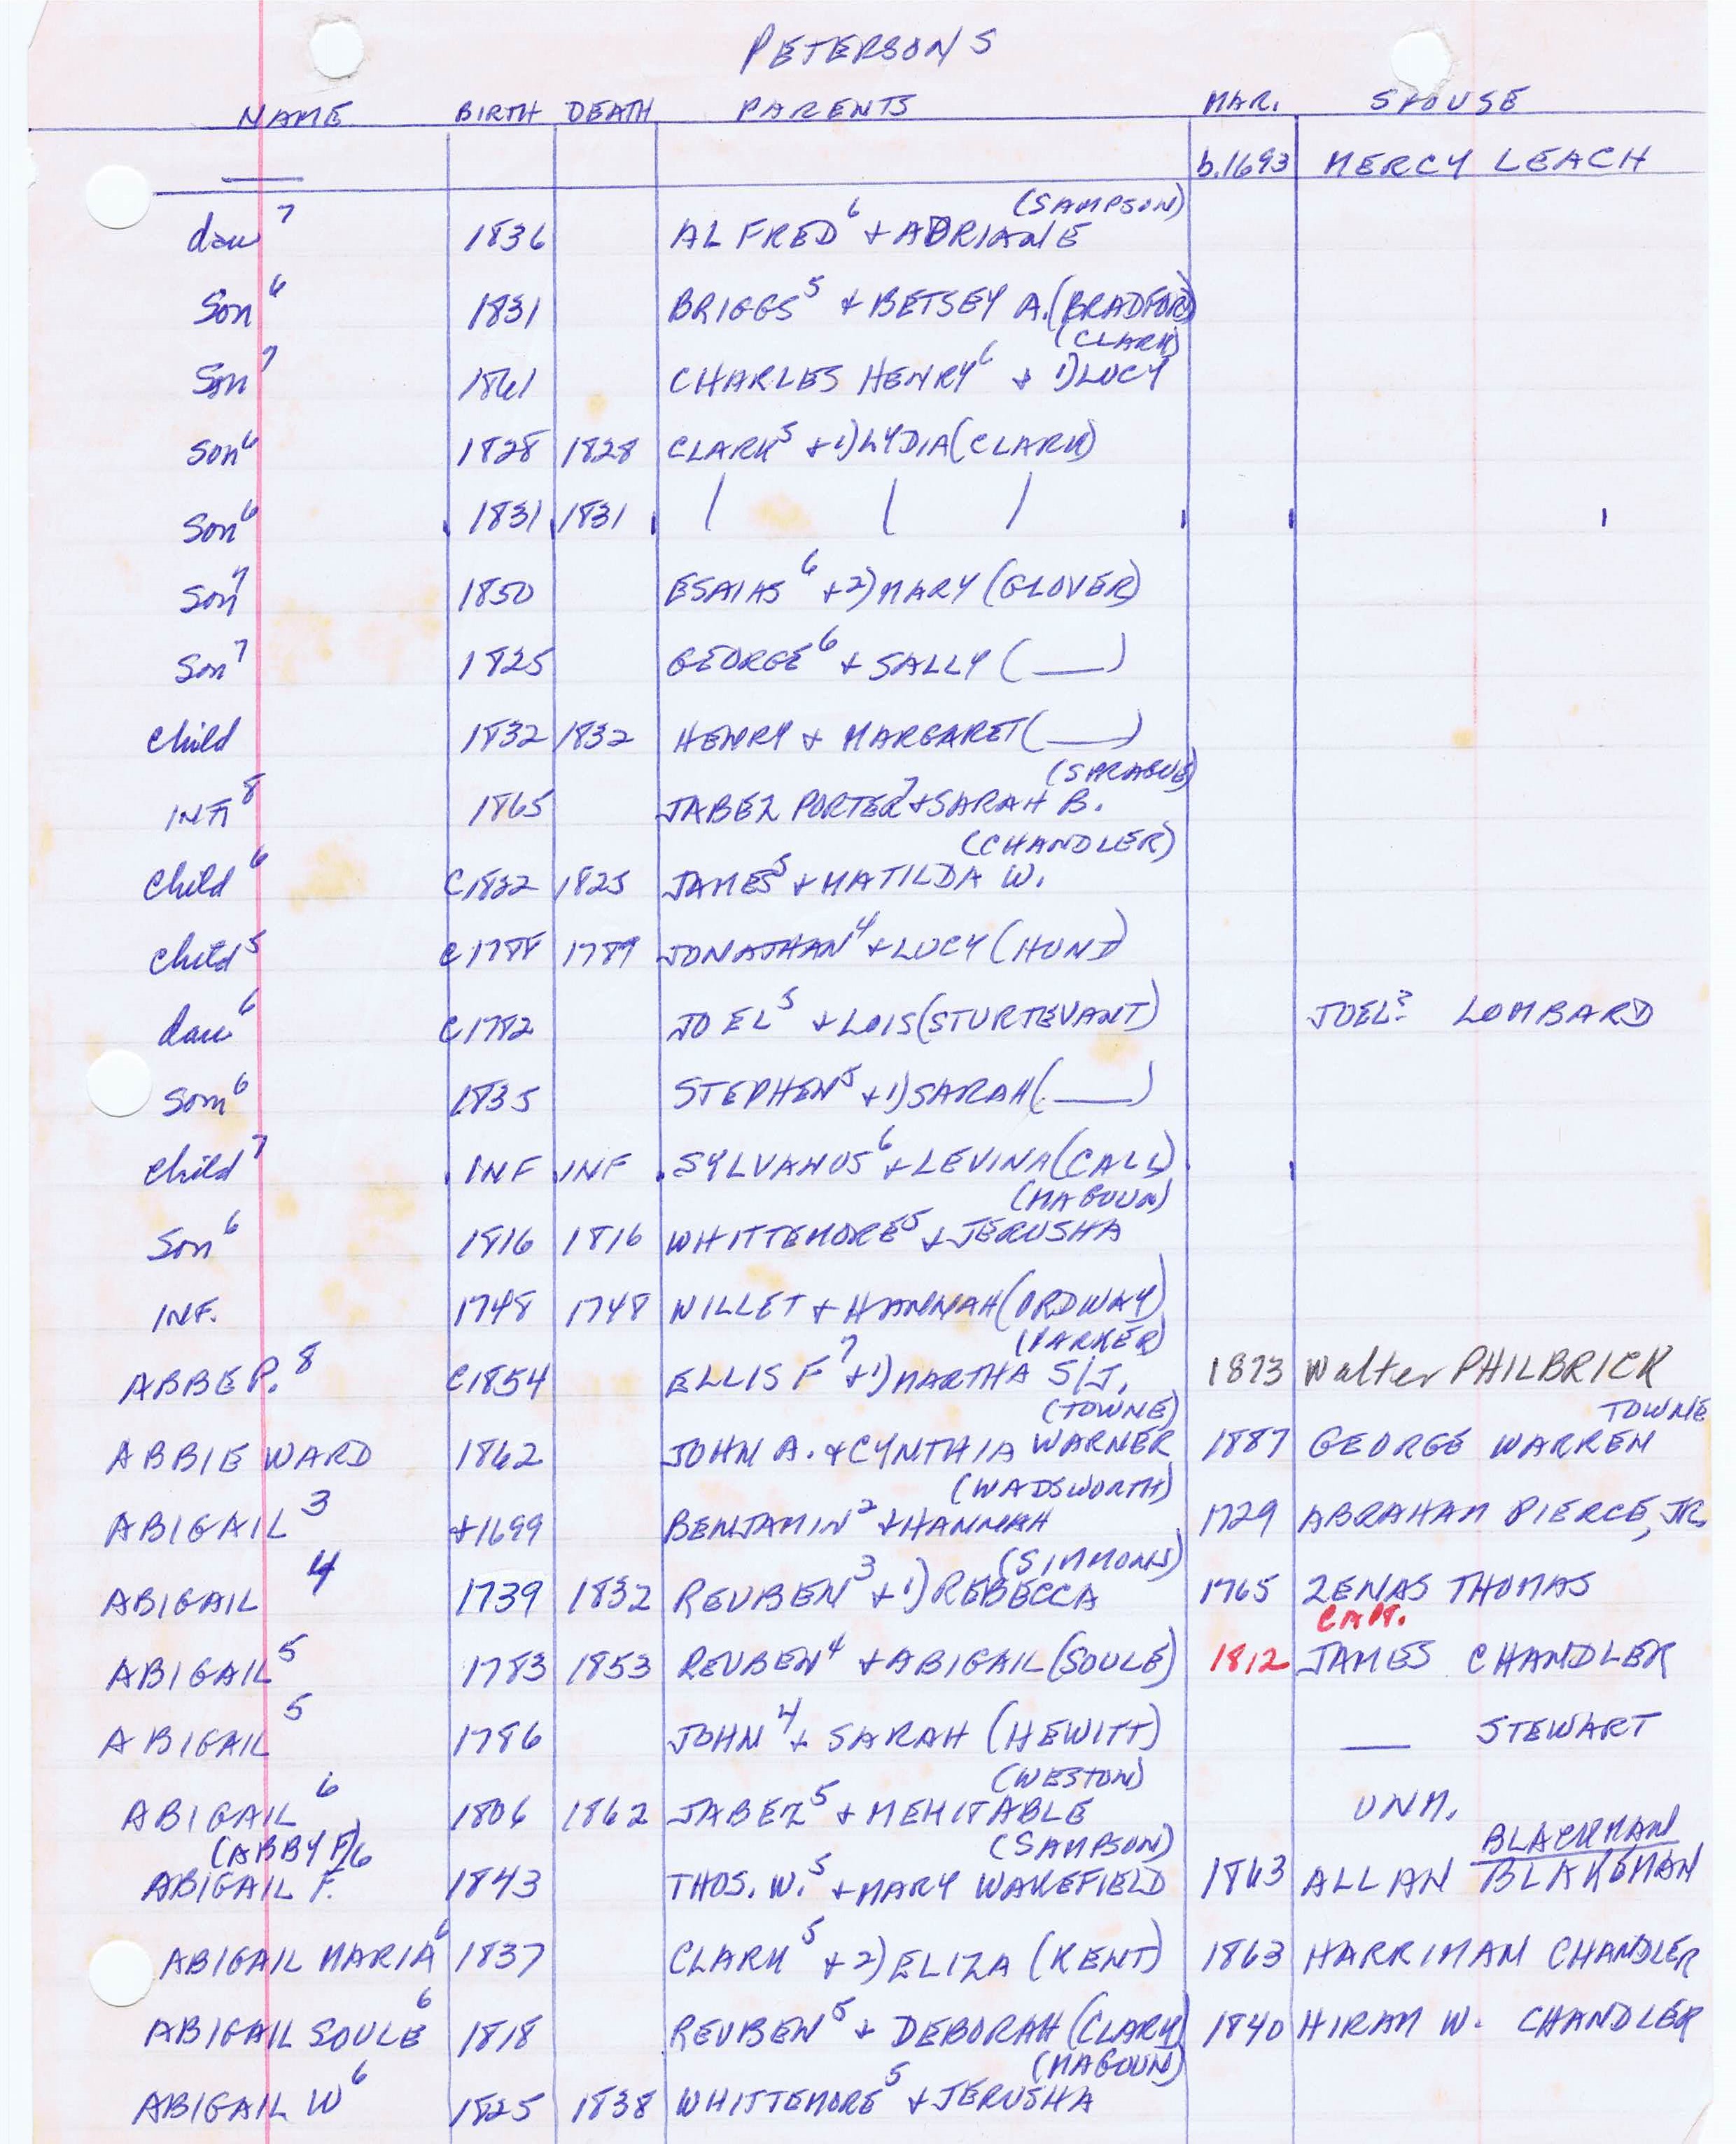 PETERSONS
NAME BIRTH DEATH PARENTS MAR. SPOUSE
— b.1693 MERCY LEACH
(SAMPSON)
dau 7 1836 ALFRED 6 + ADRIANE
Son 6 1831 BRIGGS 5 + BETSEY A. (BRADFORD)
(CLARK)
Son 7 1861 CHARLES HENRY 6 + 1) LUCY
Son 6 1828 1828 CLARK 5 + 1) LYDIA (CLARK)
Son 6 1831 1831 | | |
Son 7 1850 ESAIAS 6 + 2) MARY (GLOVER)
Son 7 1825 GEORGE 6 + SALLY ( — )
Child 1832 1832 HENRY + MARGARET ( — )
(SPRAGUE)
INF. 8 1865 JABEZ PORTER 7 + SARAH B.
(CHANDLER)
Child 6 C1822 1825 JAMES 5 + MATILDA W.
Child 5 C1788 1789 JONATHAN 4 + LUCY (HUNT)
dau 6 C1782 JOEL 5 + LOIS (STURTEVANT) JOEL? LOMBARD
Son 6 1835 STEPHEN 5 + 1) SARAH ( — )
Child 7 INF INF SYLVANUS 6 + LEVINA (CALL)
(MAGOUN)
Son 6 1816 1816 WHITTEMORE 5 + JERUSHA
INF. 1748 1748 WILLET + HANNAH (ORDWAY)
(PARKER)
ABBE P. 8 C1854 ELLIS F 7 + 1) MARTHA S/J. 1873 Walter PHILBRICK
(TOWNE) TOWNE
ABBIE WARD 1862 JOHN A. + CYNTHIA WARNER 1887 GEORGE WARREN
(WADSWORTH)
ABIGAIL 3 +1699 BENJAMIN 2 + HANNAH 1729 ABRAHAM PIERCE, JR.
(SIMMONS)
ABIGAIL 4 1739 1832 REUBEN 3 + 1) REBECCA 1765 ZENAS THOMAS
CAPT.
ABIGAIL 5 1783 1853 REUBEN 4 + ABIGAIL (SOULE) 1812 JAMES CHANDLER
ABIGAIL 5 1786 JOHN 4 + SARAH (HEWITT) — STEWART
(WESTON)
ABIGAIL 6 1806 1862 JABEZ 5 + MEHITABLE UNM.
(ABBY F) 6 (SAMPSON) BLACKMAN
ABIGAIL F. 1843 THOS. W. 5 + MARY WAKEFIELD 1863 ALLAN BLAKEMAN
ABIGAIL MARIA 6 1837 CLARK 5 + 2) ELIZA (KENT) 1863 HARRIMAN CHANDLER
ABIGAIL SOULE 6 1818 REUBEN 5 + DEBORAH (CLARK) 1840 HIRAM W. CHANDLER
(MAGOUN)
ABIGAIL W 6 1825 1838 WHITTEMORE 5 + JERUSHA